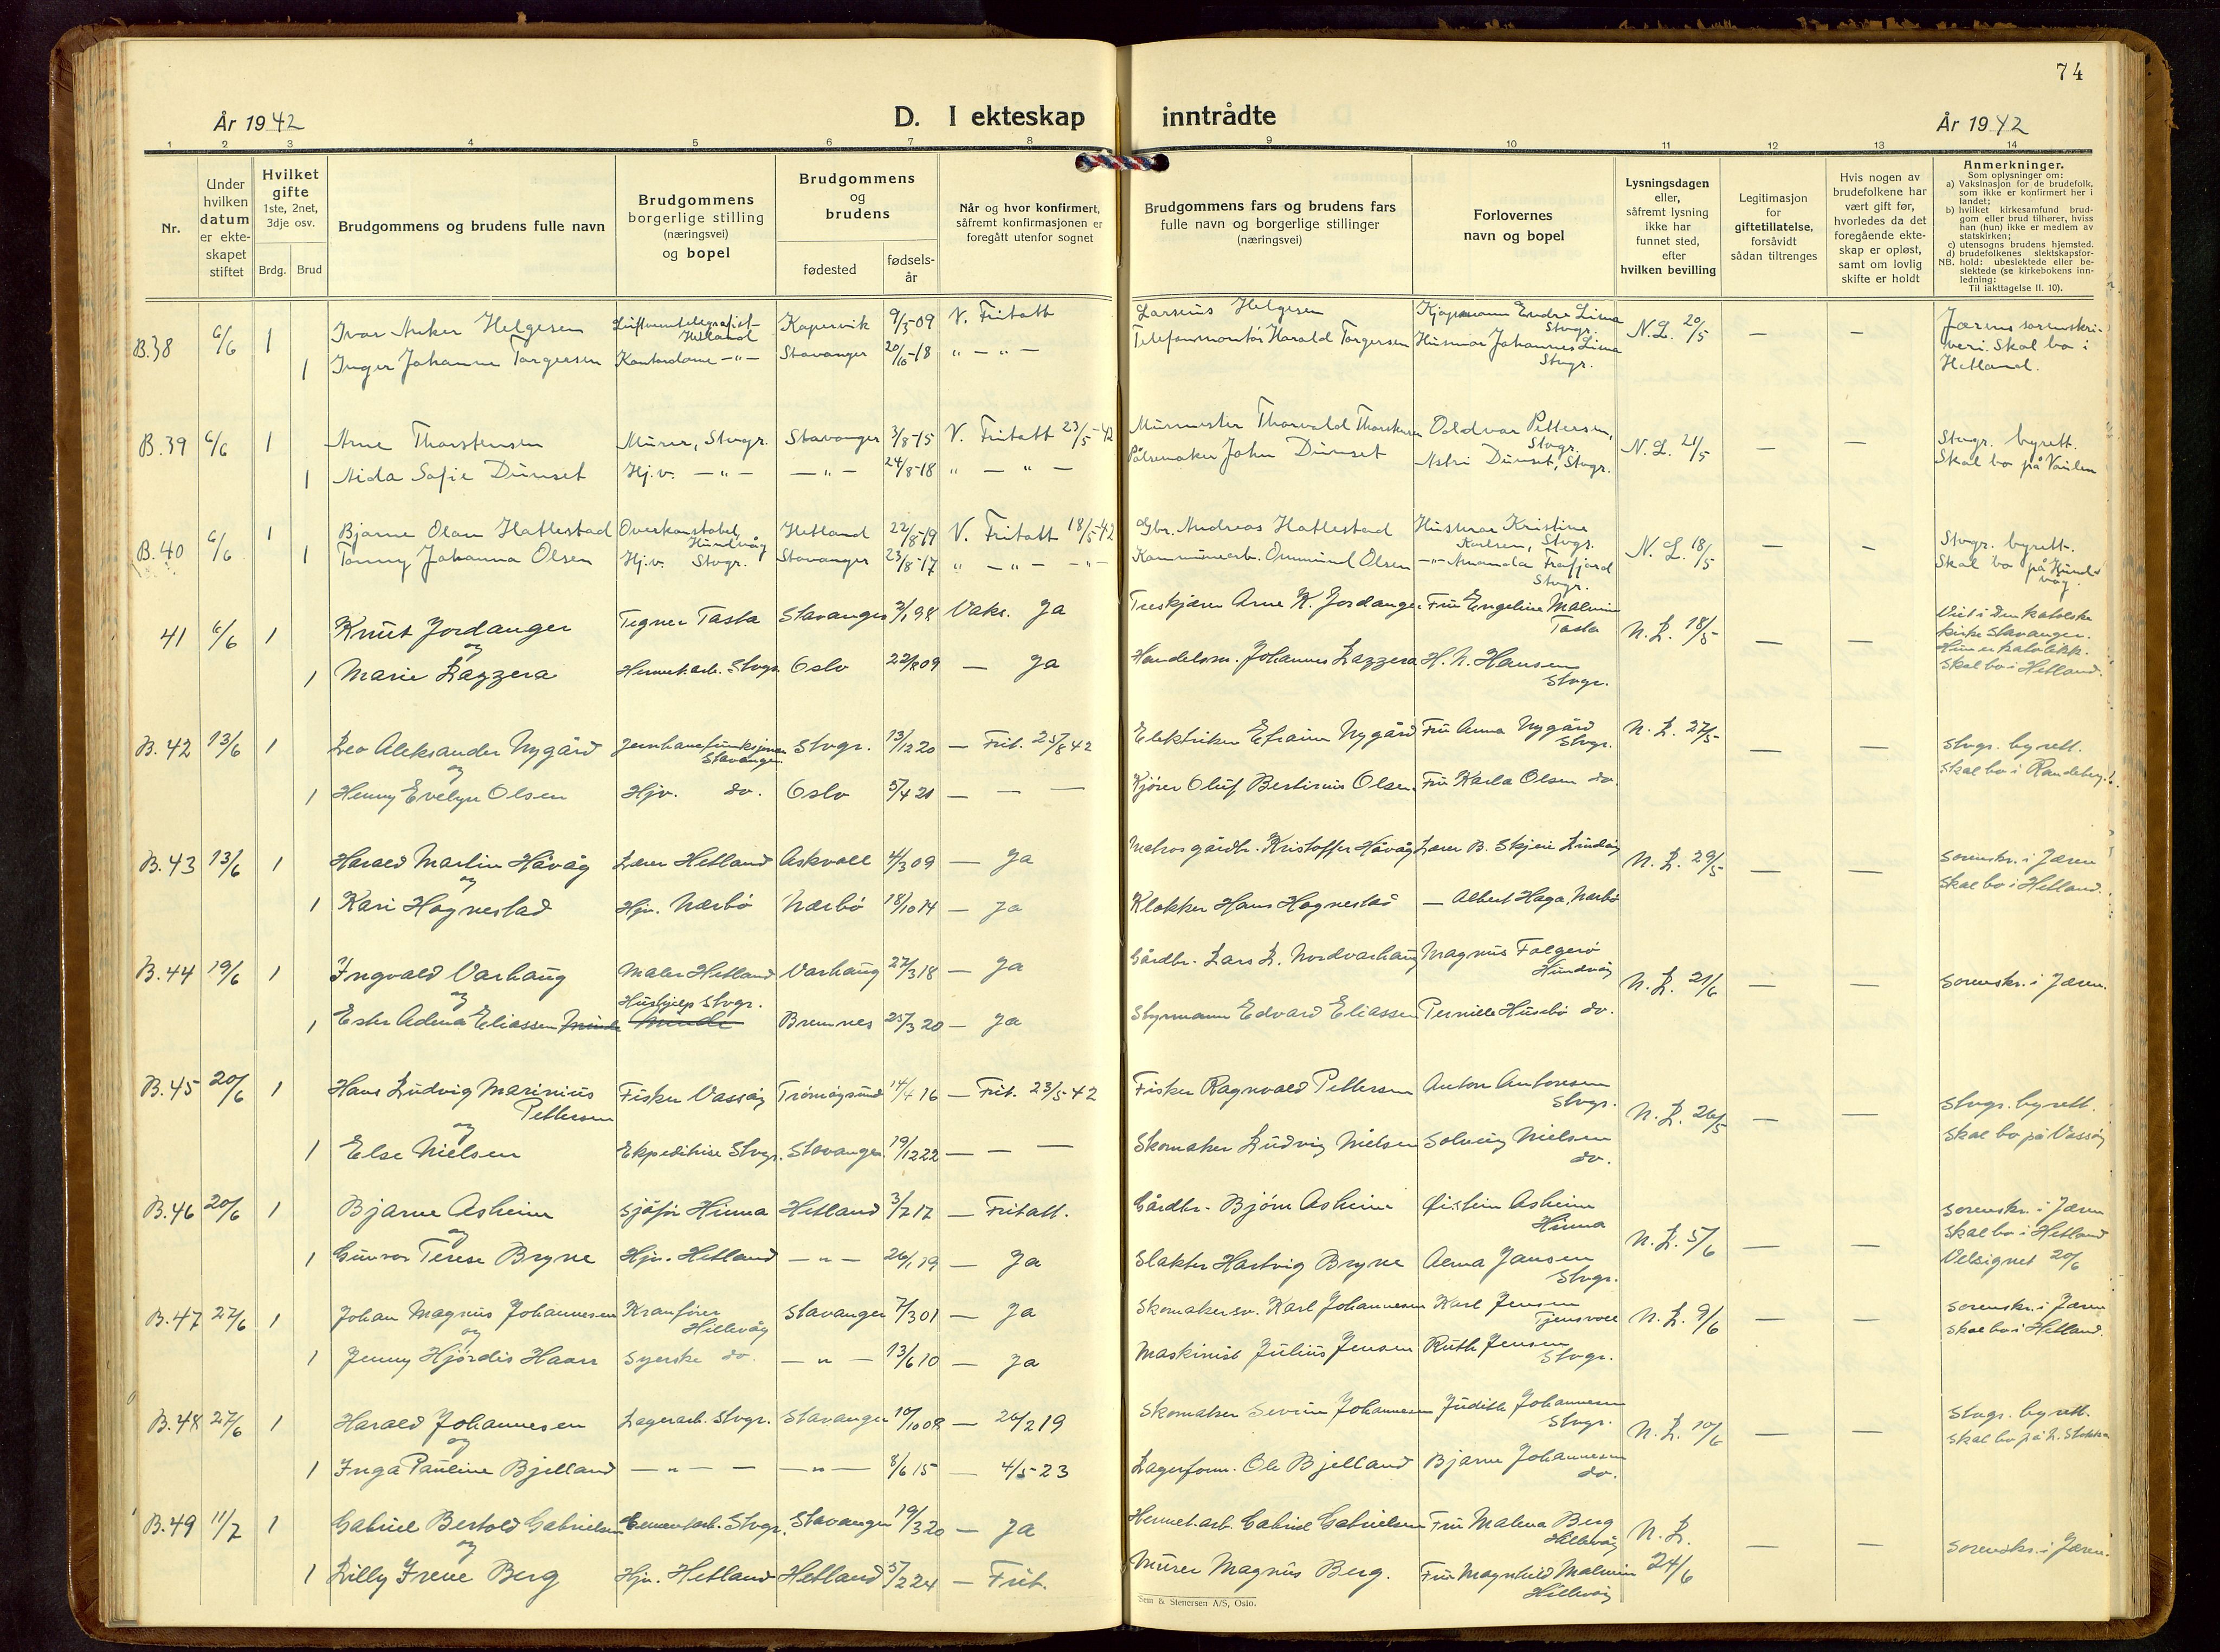 74
År 1942
D. I ekteskap inntrådte
År 1942
1 2 3 4 5 6 7 8 9 10 11 12 13 14
Nr.
Under hvilken datum er ekteskapet stiftet
Hvilket gifte 1ste, 2net, 3dje osv.
Brdg. Brud
Brudgommens og brudens fulle navn
Brudgommens borgerlige stilling (næringsvei) og bopel
Brudgommens og brudens
fødested
fødselsår
Når og hvor konfirmert, såfremt konfirmasjonen er foregått utenfor sognet
Brudgommens fars og brudens fars fulle navn og borgerlige stillinger (næringsvei)
Forlovernes navn og bopel
Lysningsdagen eller, såfremt lysning ikke har funnet sted, efter hvilken bevilling
Legitimasjon for giftetillatelse, forsåvidt sådan tiltrenges
Hvis nogen av brudefolkene har vært gift før, hvorledes da det foregående ekteskap er opløst, samt om lovlig skifte er holdt
Anmerkninger.
Som oplysninger om:
a) Vaksinasjon for de brudefolk, som ikke er konfirmert her i landet;
b) hvilket kirkesamfund brudgom eller brud tilhører, hviss han (hun) ikke er medlem av statskirken;
c) utensogns brudens hjemsted.
d) brudefolkenes slektskapsforhold: ubeslektede eller beslektede (se kirkebokens innledning:
NB. Til iakttagelse II. 10).
B.38 6/6 1 Ivar Anker Helgesen Hetland Kopervik 9/5-09 V. Fritatt Larsius Helgesen Kjøpmann Endre Lima Stvgr. N.L. 20/5 — — Jærens sorenskriveri. Skal bo i Hetland.
1 Inger Johanne Torgersen Kontordame -"- Stavanger 20/10-18 " - " - Telefonmontør Harald Torgersen Husmor Johannes Lima Stvgr.
B.39 6/6 1 Arne Thorstensen Murer, Stvgr. Stavanger 3/8-15 V. Fritatt 23/5-42 Murmester Thorvald Thorstensen Oddvar Pettersen, Stvgr. N.L. 21/5 — — Stvgr. byrett. Skal bo på Vaulen
1 Aida Sofie Dunset Hj.v. -"- -"- 24/8-18 " - " - Pølsemaker John Dunset Astri Dunset, Stvgr.
B.40 6/6 1 Bjarne Olav Hatlestad Overkonstabel Hundvåg Hetland 22/8-19 V. Fritatt 18/5-42 Gbr. Andreas Hatlestad Husmor Kristine Karlsen, Stvgr. N.L. 18/5 — — Stvgr. byrett. Skal bo på Hundvåg.
1 Tonny Johanna Olsen Hj.v. Stvgr. Stavanger 23/8-17 " - " - -"- Kommunearb. Ommund Olsen -"- Amanda Frafjord Stvgr.
41 6/6 1 Knut Jordanger Tegner Tasta Stavanger 2/1 98 Vaks. Ja Treskjærer Arne K. Jordanger Fru Engeline Malmin Tasta N.L. 18/5 — — Viet i den katolske kirke Stavanger. Hun er katolikk. Skal bo i Hetland.
og
1 Marie Lazzera Hermet.arb. Stvgr. Oslo 22/8 09 — Ja Handelsm. Johannes Lazzera H. N. Hansen Stvgr.
B.42 13/6 1 Leo Aleksander Nygård Jernbanefunksjonær Stavanger Stvgr. 13/12 20 — Frit. 25/8 42 Elektriker Efraim Nygård Fru Anna Nygård Stvgr. N.L. 27/5 — — Stvgr. byrett. Skal bo i Randeberg.
og
1 Henny Evelyn Olsen Hjv. do. Oslo 5/4 21 — — — Kjører Oluf Bertinius Olsen Fru Karla Olsen do.
B.43 13/6 1 Harald Martin Håvåg Lærer Hetland Askvoll 4/3 09 — Ja gårdbr. Kristoffer Håvåg Lærer B. Skjeie N.L. 29/5 — — Sorenskr. i Jæren Skal bo i Hetland.
og
1 Kari Hognestad Hjv. Nærbø Nærbø 18/10 14 — Ja Klokker Hans Hognestad — Albert Haga, Nærbø
B.44 19/6 1 Yngvald Varhaug Maler Hetland Varhaug 27/3 18 — Ja Gårdbr. Lars L. Nordvarhaug Magnus Folgerö Hundvåg N.L. 21/6 — — Sorenskr. i Jæren.
og
1 Ester Adina Eliassen Hushjelp Stvgr. Bremnes 25/3 20 — Ja Styrmann Edvard Eliassen Pernille Husebö do.
B.45 20/6 1 Hans Ludvig Marinius Pettersen Fisker Vassøy 14/4 16 — Frit. 23/5-42 Fisker Ragnvald Pettersen Anton Antonsen Stvgr. N.L. 26/5 — — Stvgr. byrett. Skal bo på Vassøy
og
1 Else Nielsen Ekspeditrise Stvgr. Stavanger 19/12 22 — — — Skomaker Ludvig Nielsen Solveig Nielsen do.
B.46 20/6 1 Bjarne Asheim Sjåför Hinna Hetland 3/7 17 — Fritatt. Gårdbr. Björn Asheim Øistein Asheim Hinna N.L. 5/6 — — Sorenskr. i Jæren Skal bo i Hetland Velsignet 20/6
og
1 Gunvor Terese Bryne Hjv. Hetland -"- 26/1 19 — Ja Slakter Hartvig Bryne Jansen Stvgr.
B.47 27/6 1 Johan Magnus Johannesen Kranförer Hillevåg Stavanger 7/3 01 — Ja Skomakersv. Karl Johannesen Karl Jensen Tjensvoll N.L. 9/6 — — Sorenskr. i Jæren Skal bo i Hetland.
og
1 Jenny Hjördis Haarr Syerske do. -"- 13/6 10 — Ja Maskinist Julius Jensen Ruth Jensen Stvgr.
B.48 27/6 1 Harald Johannesen Lagerarb. Stvgr. Stavanger 10/10 08 — 26/2 19 Skomaker Severin Johannesen Judith Johannesen Stvgr. N.L. 10/6 — — Stvgr. byrett. Skal bo på
og
1 Inga Pauline Bjelland -"- -"- 8/6 15 — 4/5-23 Lagerform. Ole Bjelland Bjarne Johannesen do.
B.49 11/7 1 Gabriel Bertold Gabrielsen Sementarb. Stvgr. Stavanger 19/3 20 — Ja Hermet.arb. Gabriel Gabrielsen Fru Malena Berg Hillevåg N.L. 24/6 — — Sorenskr. i Jæren.
og
1 Lilly Irene Berg Hjv. Hetland Hetland 5/2 24 — Frit. Murer Magnus Berg. Fru Magnhild Malmin Hillevåg
Sem & Stenersen A/S, Oslo.